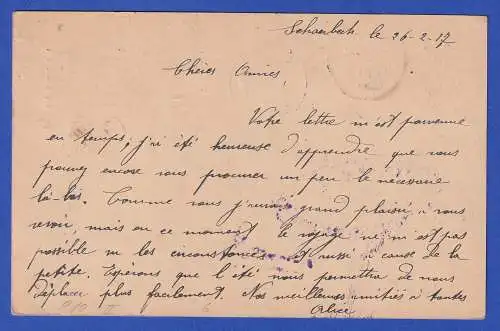 Schaerbeek le 26-2-17
Chères Amies,
Votre lettre m'est parvenue
en temps; j'ai été heureuse d'apprendre que vous
pouvez encore vous procurer un peu le nécessaire
là-bas. Comme vous j'aurais grand plaisir à vous
revoir, mais en ce moment le voyage ne m'est pas
possible ni les circonstances et aussi à cause de la
petite. Espérons que l'été nous permettra de nous
déplacer plus facilement. Nos meilleures amitiés à toutes
Alice